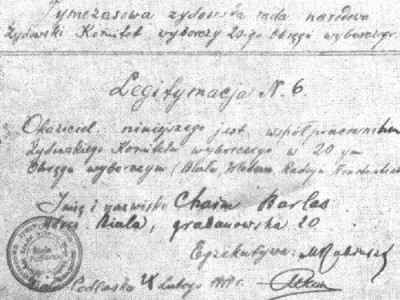 Tymczasowa żydowska rada narodowa
Żydowski Komitet wyborczy 20-go Okręgu wyborczego.
Legitymacja N. 6.
Okaziciel niniejszego jest współpracownikiem
Żydowskiego Komitetu wyborczego w 20-ym
Okręgu wyborczym (Biała Włodawa Radzyń
Imię i nazwisko Chaim Barlas
Adres Biała, grabanowska 20
Egzekutywa:
Biała Podlaska Lutego